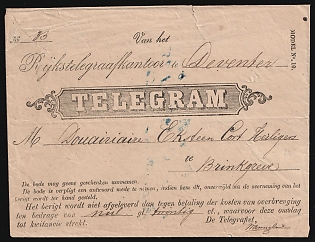 Van het
MODEL No. 10.
Rijkstelegraafkantoor te Deventer
TELEGRAM
M Douairiaire
te
Brinkgreve
De bode mag geene geschenken aannemen.
De bode is verpligt een antwoord mede te nemen, indien hem dit, onmiddellijk bij de overneming van het
berigt wordt ter hand gesteld.
Het berigt wordt niet afgeleverd dan tegen betaling der kosten van overbrenging
ten bedrage van et, waarvoor deze omslag
tot kwitantie strekt.
De Telegrafist,